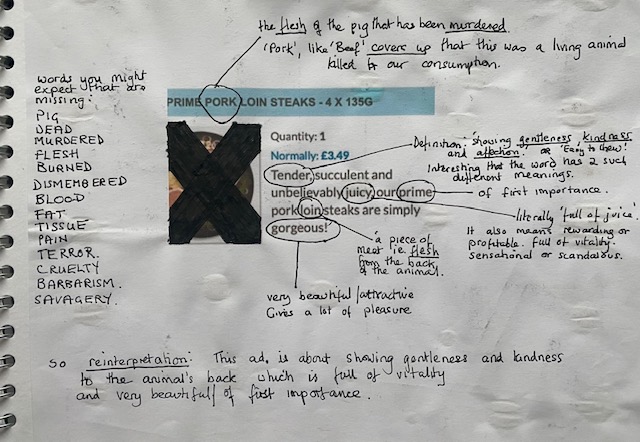 the flesh of the pig that has been murdered.
'Pork', like 'Beef' covers up that this was a living animal
killed for our consumption.
words you might
expect that are
missing:
PIG
DEAD
MURDERED
FLESH
BURNED
DISMEMBERED
BLOOD
FAT
TISSUE
PAIN
TERROR.
CRUELTY
BARBARISM.
SAVAGERY.
PRIME PORK LOIN STEAKS - 4 X 135G
Quantity: 1
Normally: £3.49
Tender, succulent and
unbelievably juicy, our prime
pork loin steaks are simply
gorgeous!
Definition: showing gentleness kindness
and affection. or 'Easy to chew!'
Interesting that the word has 2 such
different meanings.
of first importance.
literally 'full of juice'.
It also means rewarding or
profitable. full of vitality.
sensational or scandalous.
a piece of
meat i.e. flesh
from the back
of the animal.
very beautiful/attractive
Gives a lot of pleasure
So reinterpretation: This ad. is about showing gentleness and kindness
to the animal's back which is full of vitality
and very beautiful/ of first importance.